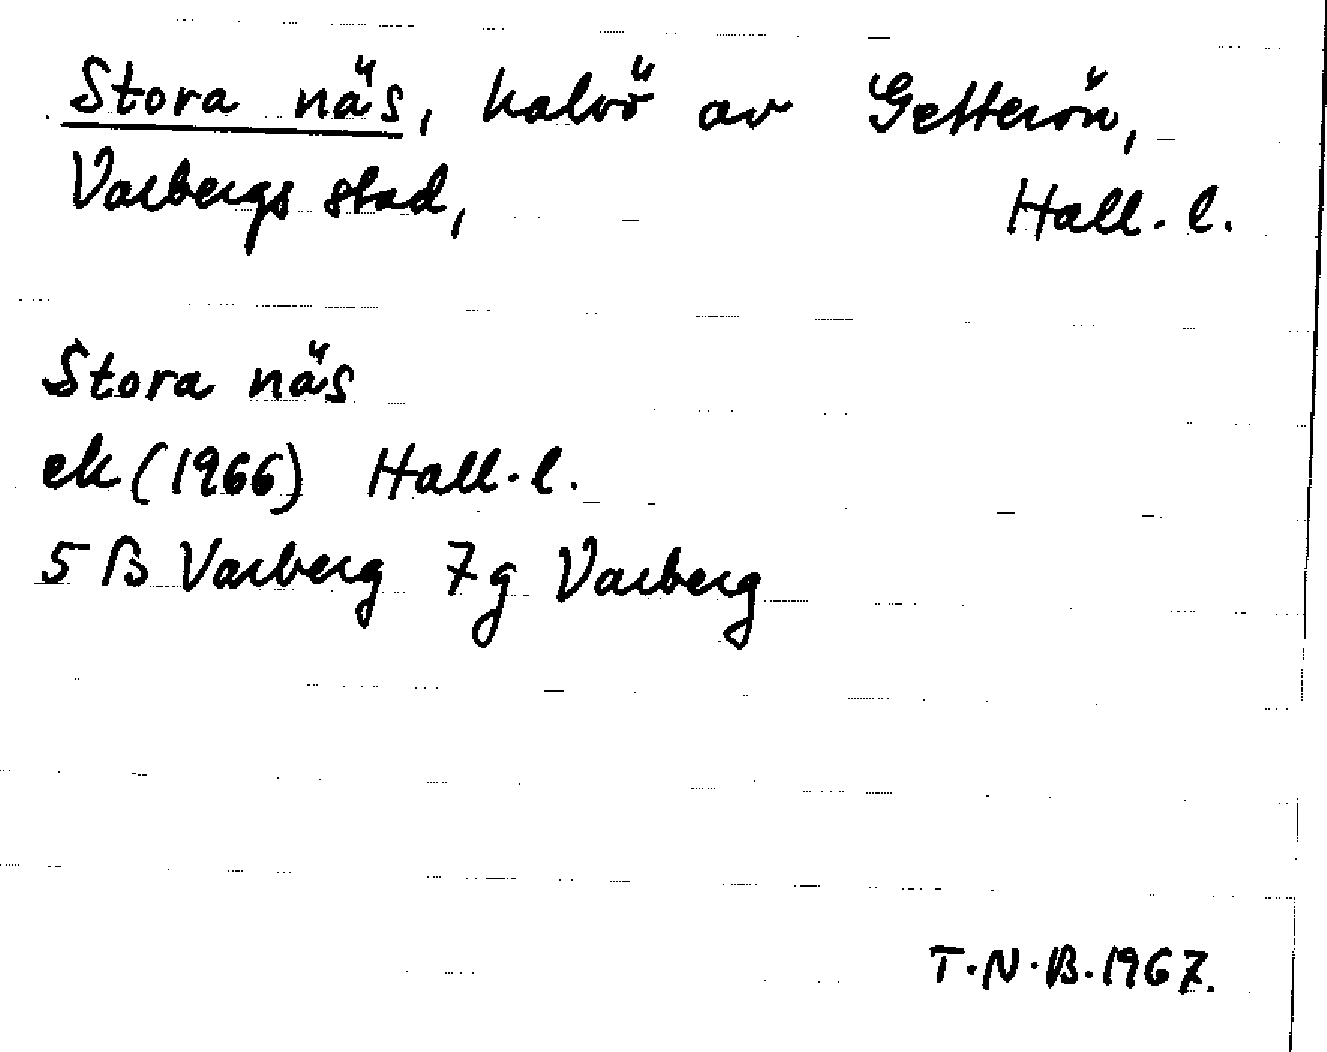 Stora näs, halvö av Getterön,
Varbergs stad, Hall. l.
Stora näs
ek (1966) Hall. l.
5 B Varberg 7g Varberg
T.N.B. 1967.